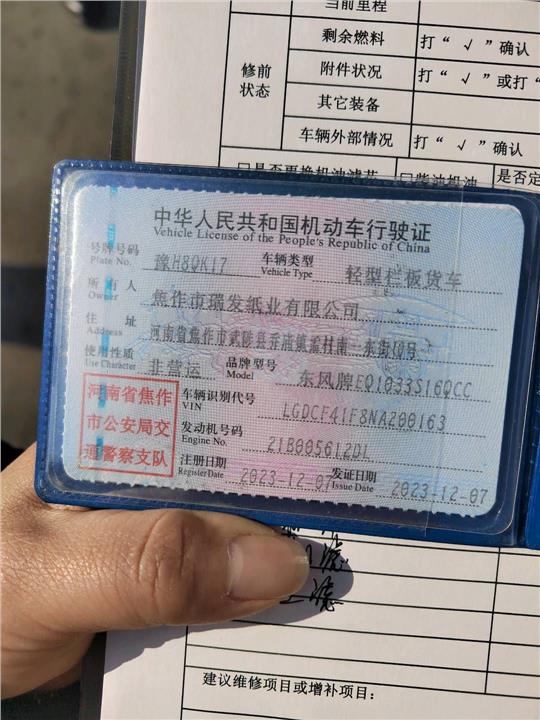 当前里程
剩余燃料
打“ √ ”确认
修前
状态
附件状况
打“ √ ”或打“
其它装备
车辆外部情况
打“ √ ”确认
□是否更换机油滤芯
□柴油机油
是否定
中华人民共和国机动车行驶证
Vehicle License of the People's Republic of China
号牌号码
Plate No.
豫H8QK17
车辆类型
Vehicle Type
轻型栏板货车
所 有 人
Owner
焦作市瑞发纸业有限公司
住 址
Address
河南省焦作市武陟县乔庙镇孟村南一东街
号
使用性质
Use Character
非营运
品牌型号
Model
东风牌EQ1033S16QCC
河南省焦作
市公安局交
通警察支队
车辆识别代号
VIN
LGDCF41F8NA200163
发动机号码
Engine No.
21B005612DL
注册日期
Register Date
2023-12-07
发证日期
Issue Date
2023-12-07
滤
滤
建议维修项目或增补项目：